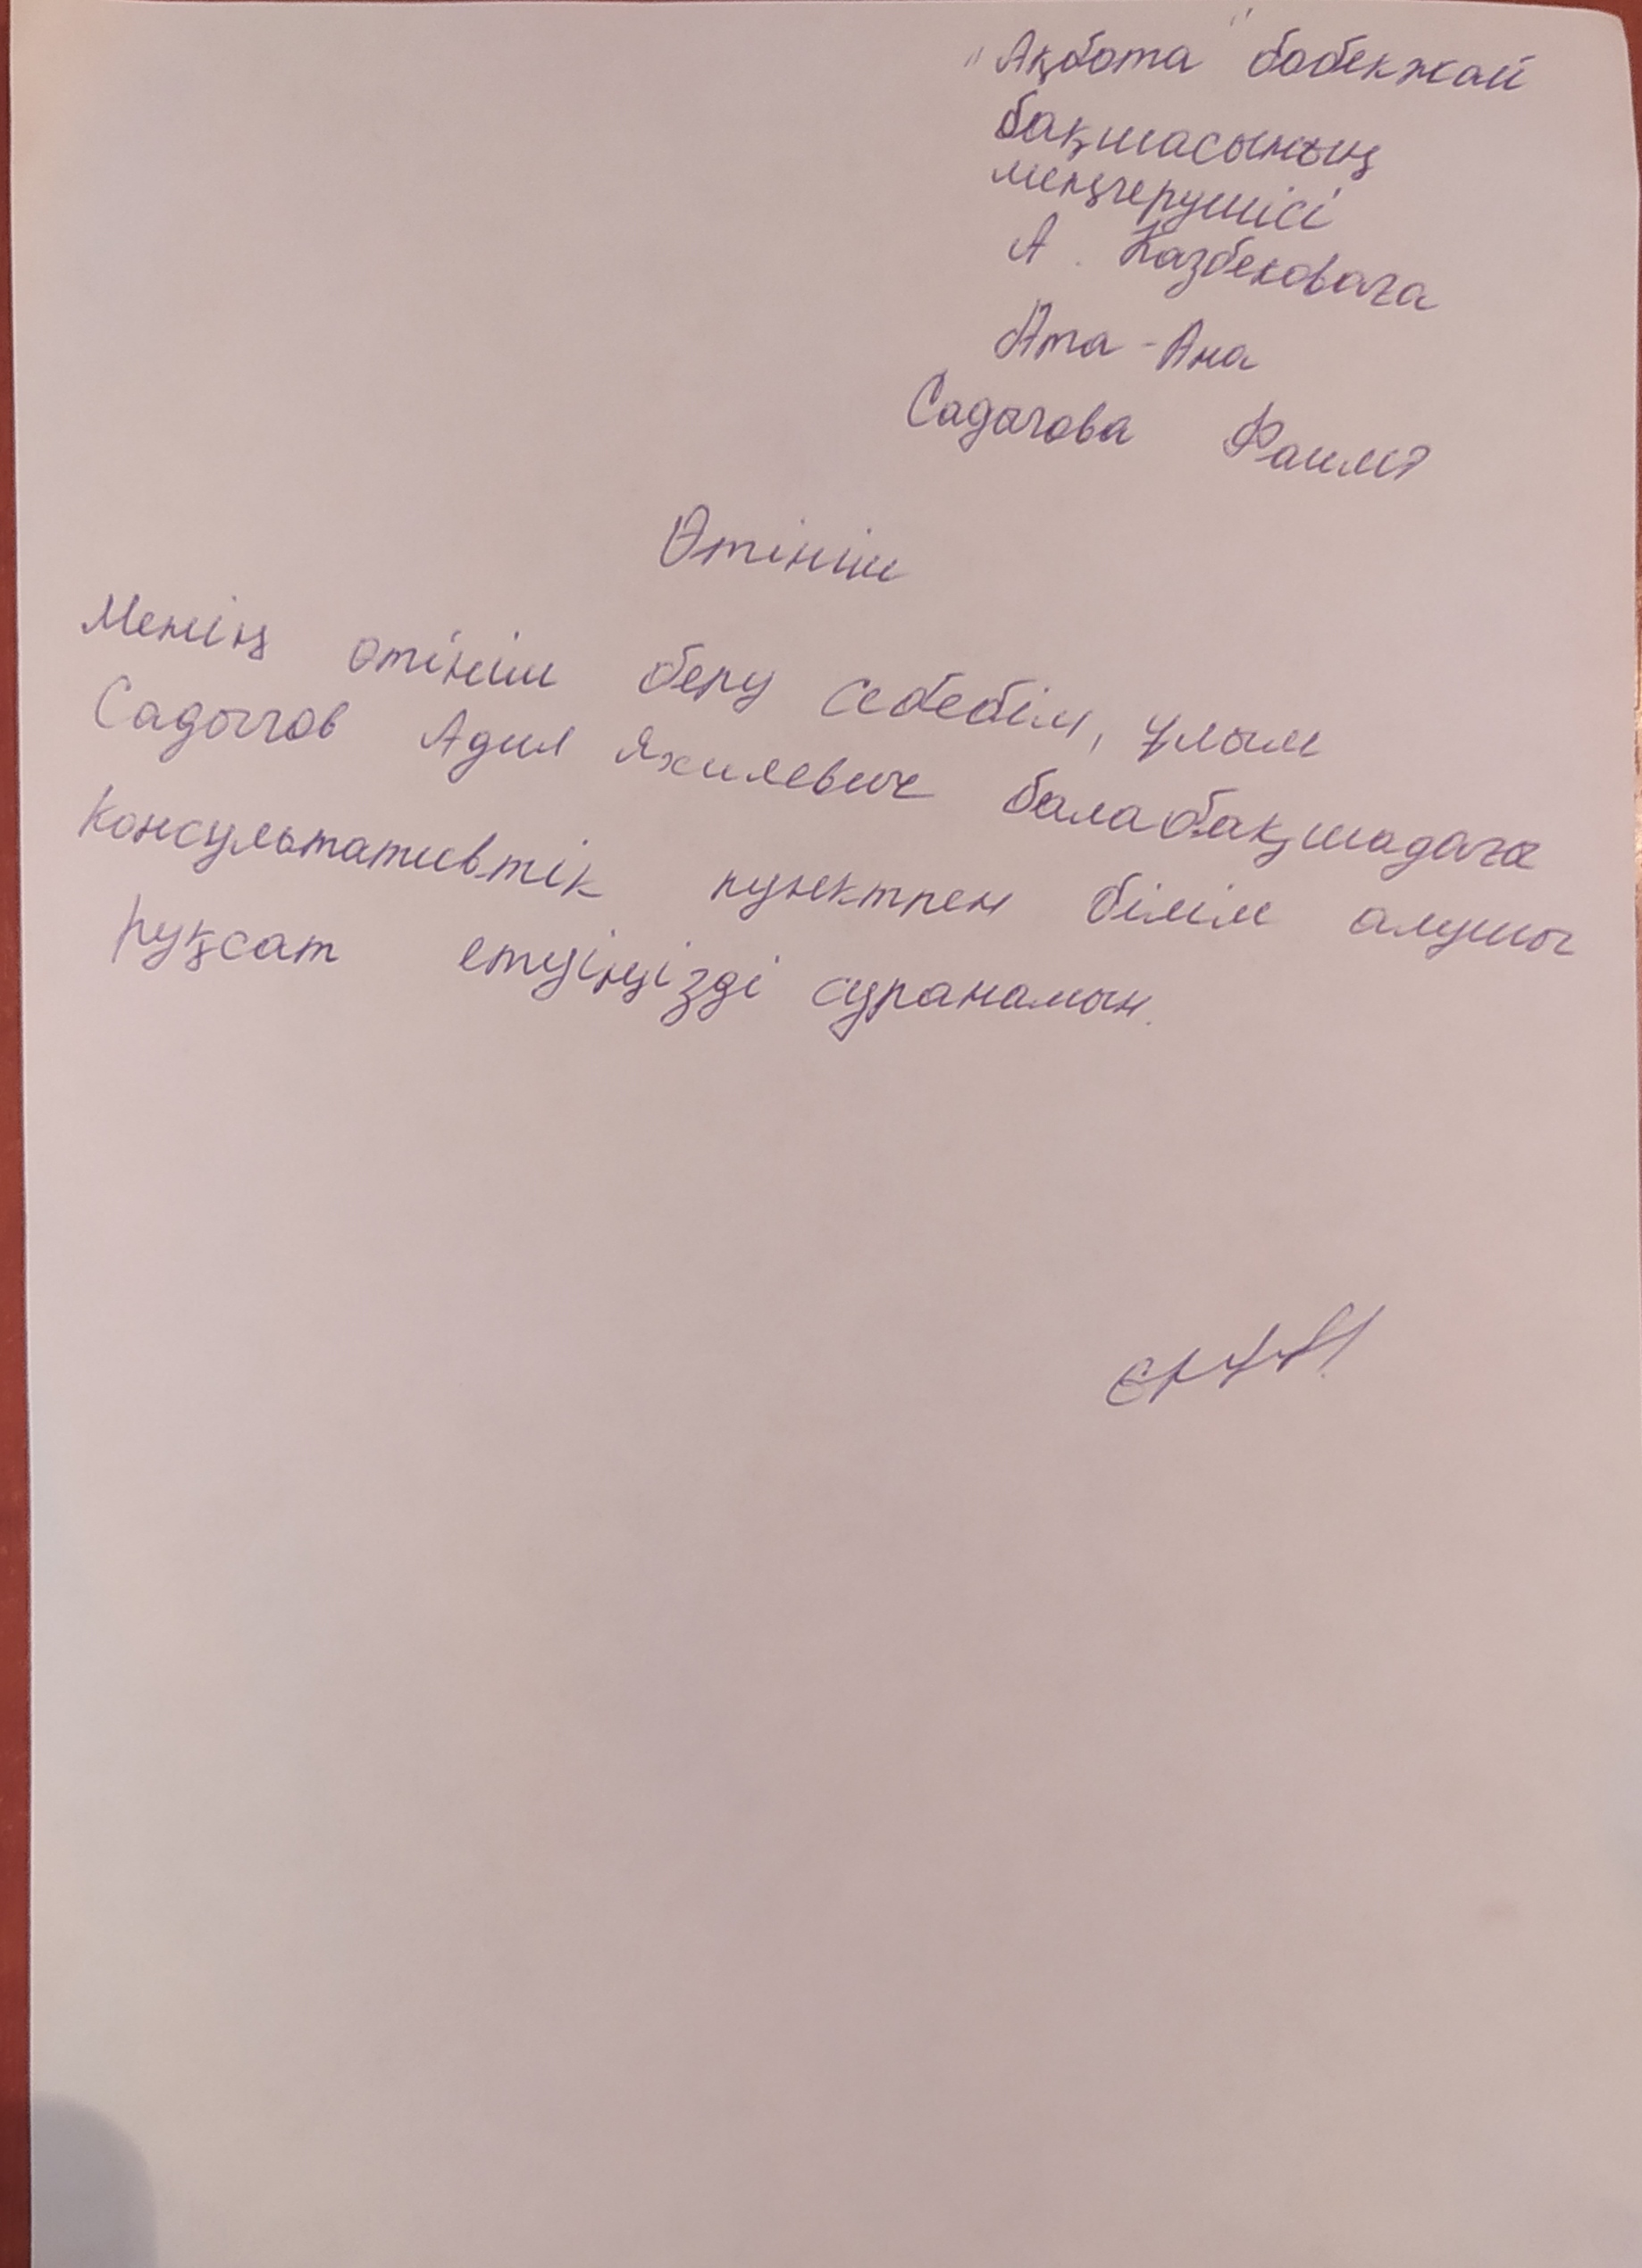 "Ақбота" бөбекжай
бақшасының
меңгерушісі
А. Казбековаға
Ата-Ана
Садыгова
Өтініш
Менің өтініш беру себебім, ұлым
Садыгов Адил Яхилевич балабақшадағы
консультативтік пунктпен білім алушы
рұқсат етуіңізді сұранамын.